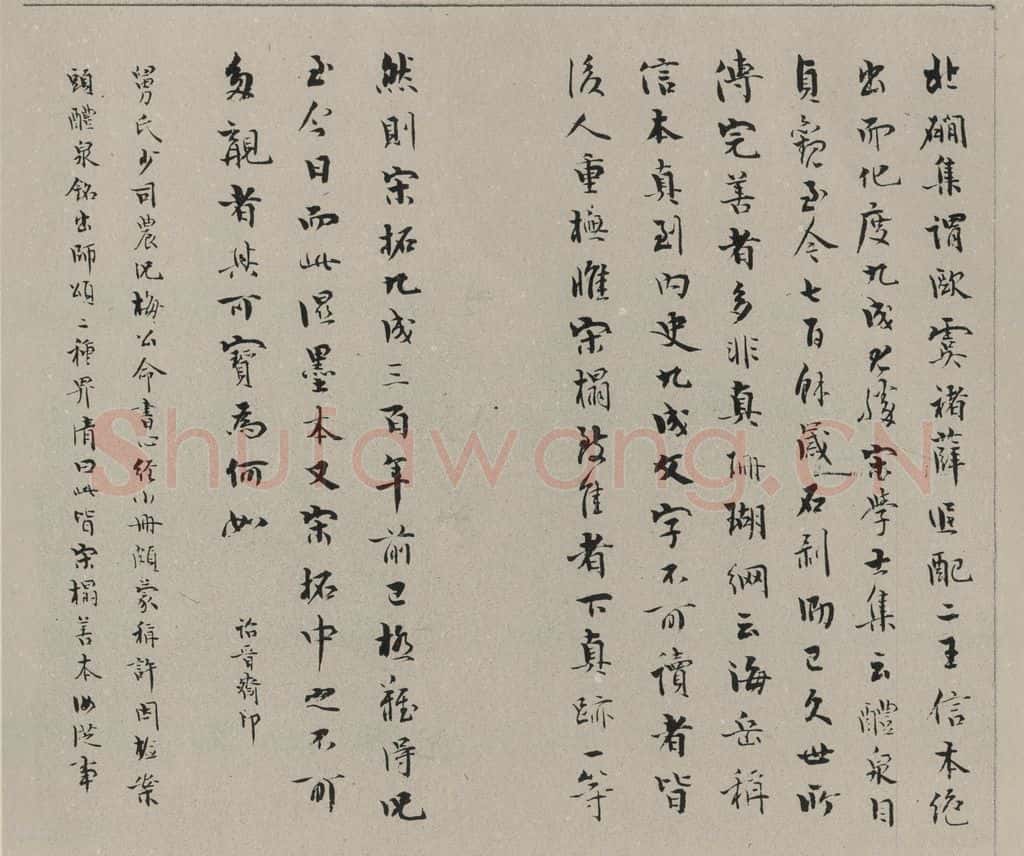 北磵集謂歐虞褚薛追配二王信本絕
出而化度九成尤勝宋學士集云醴泉自
貞觀至今七百餘歲石剥泐已久世所
傳完善者多非真珊瑚網云海岳稱
信本真到内史九成文字不可讀者皆
後人重橅唯宋榻致佳者下真跡一等
然則宋拓九成三百年前已極難得況
至今日而此濕墨本又宋拓中之不可
多覯者其可寶為何如
詒晉齋印
舅氏少司農況梅公命書心經小冊頗蒙稱許因檢案
頭醴泉銘出師頌二種畀清曰此皆宋榻善本汝從事
Shufawang.CN